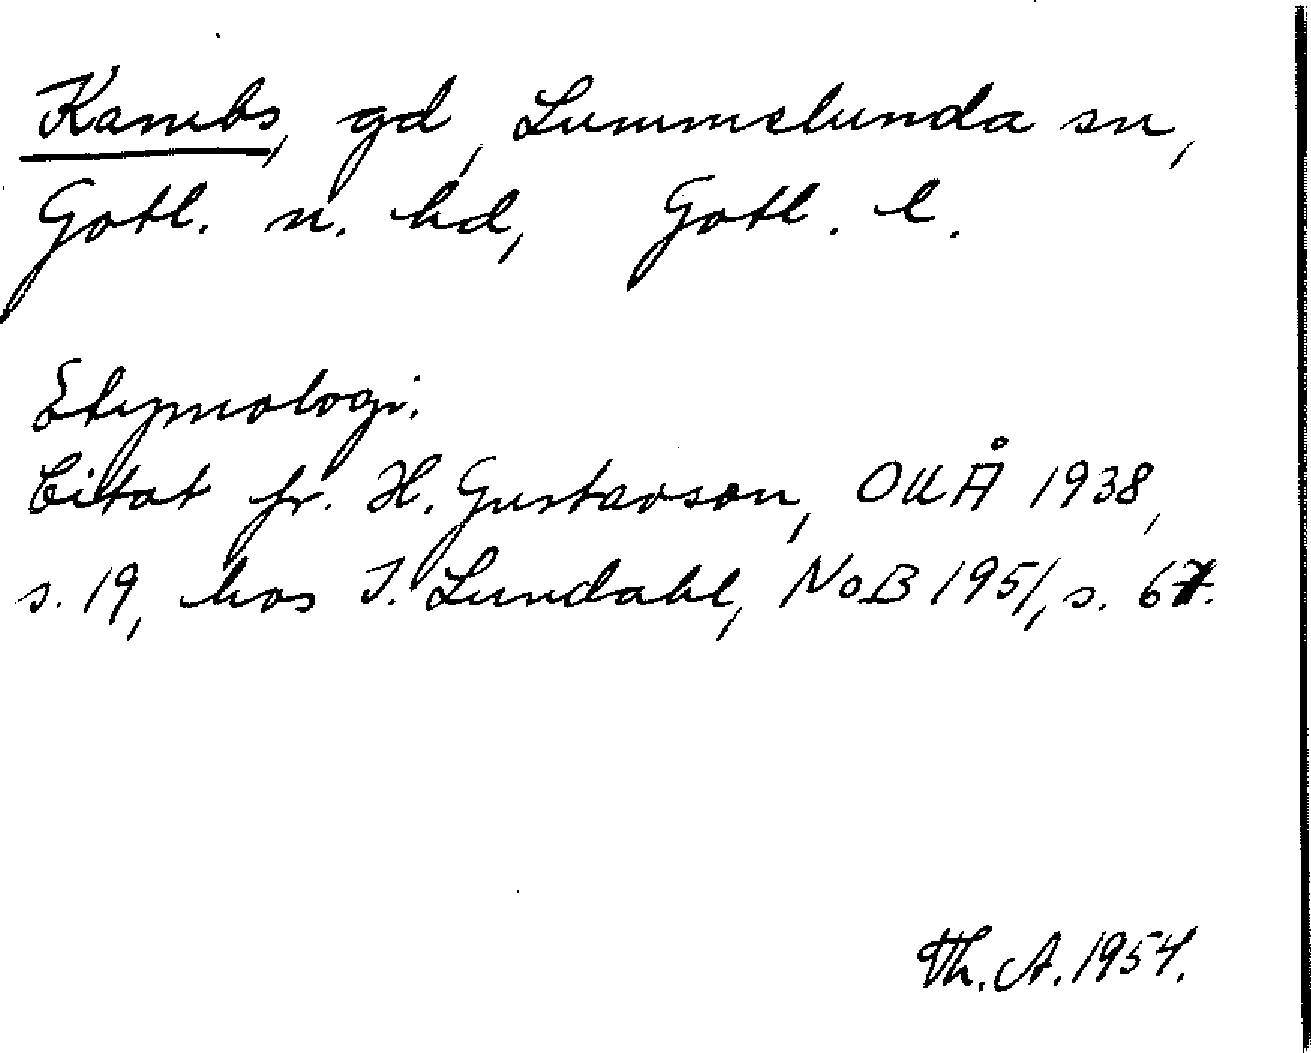 Kambs, gd, Lummelunda sn,
Gotl. n. hd, Gotl. l.
Etymologi.
Citat fr. H. Gustavson, OUÅ 1938,
s. 19, hos I. Lundahl, NoB 1951, s. 67.
Th. A. 1954.